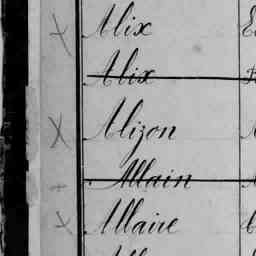 Alix
Alix
Alizon
Allain
Allaire